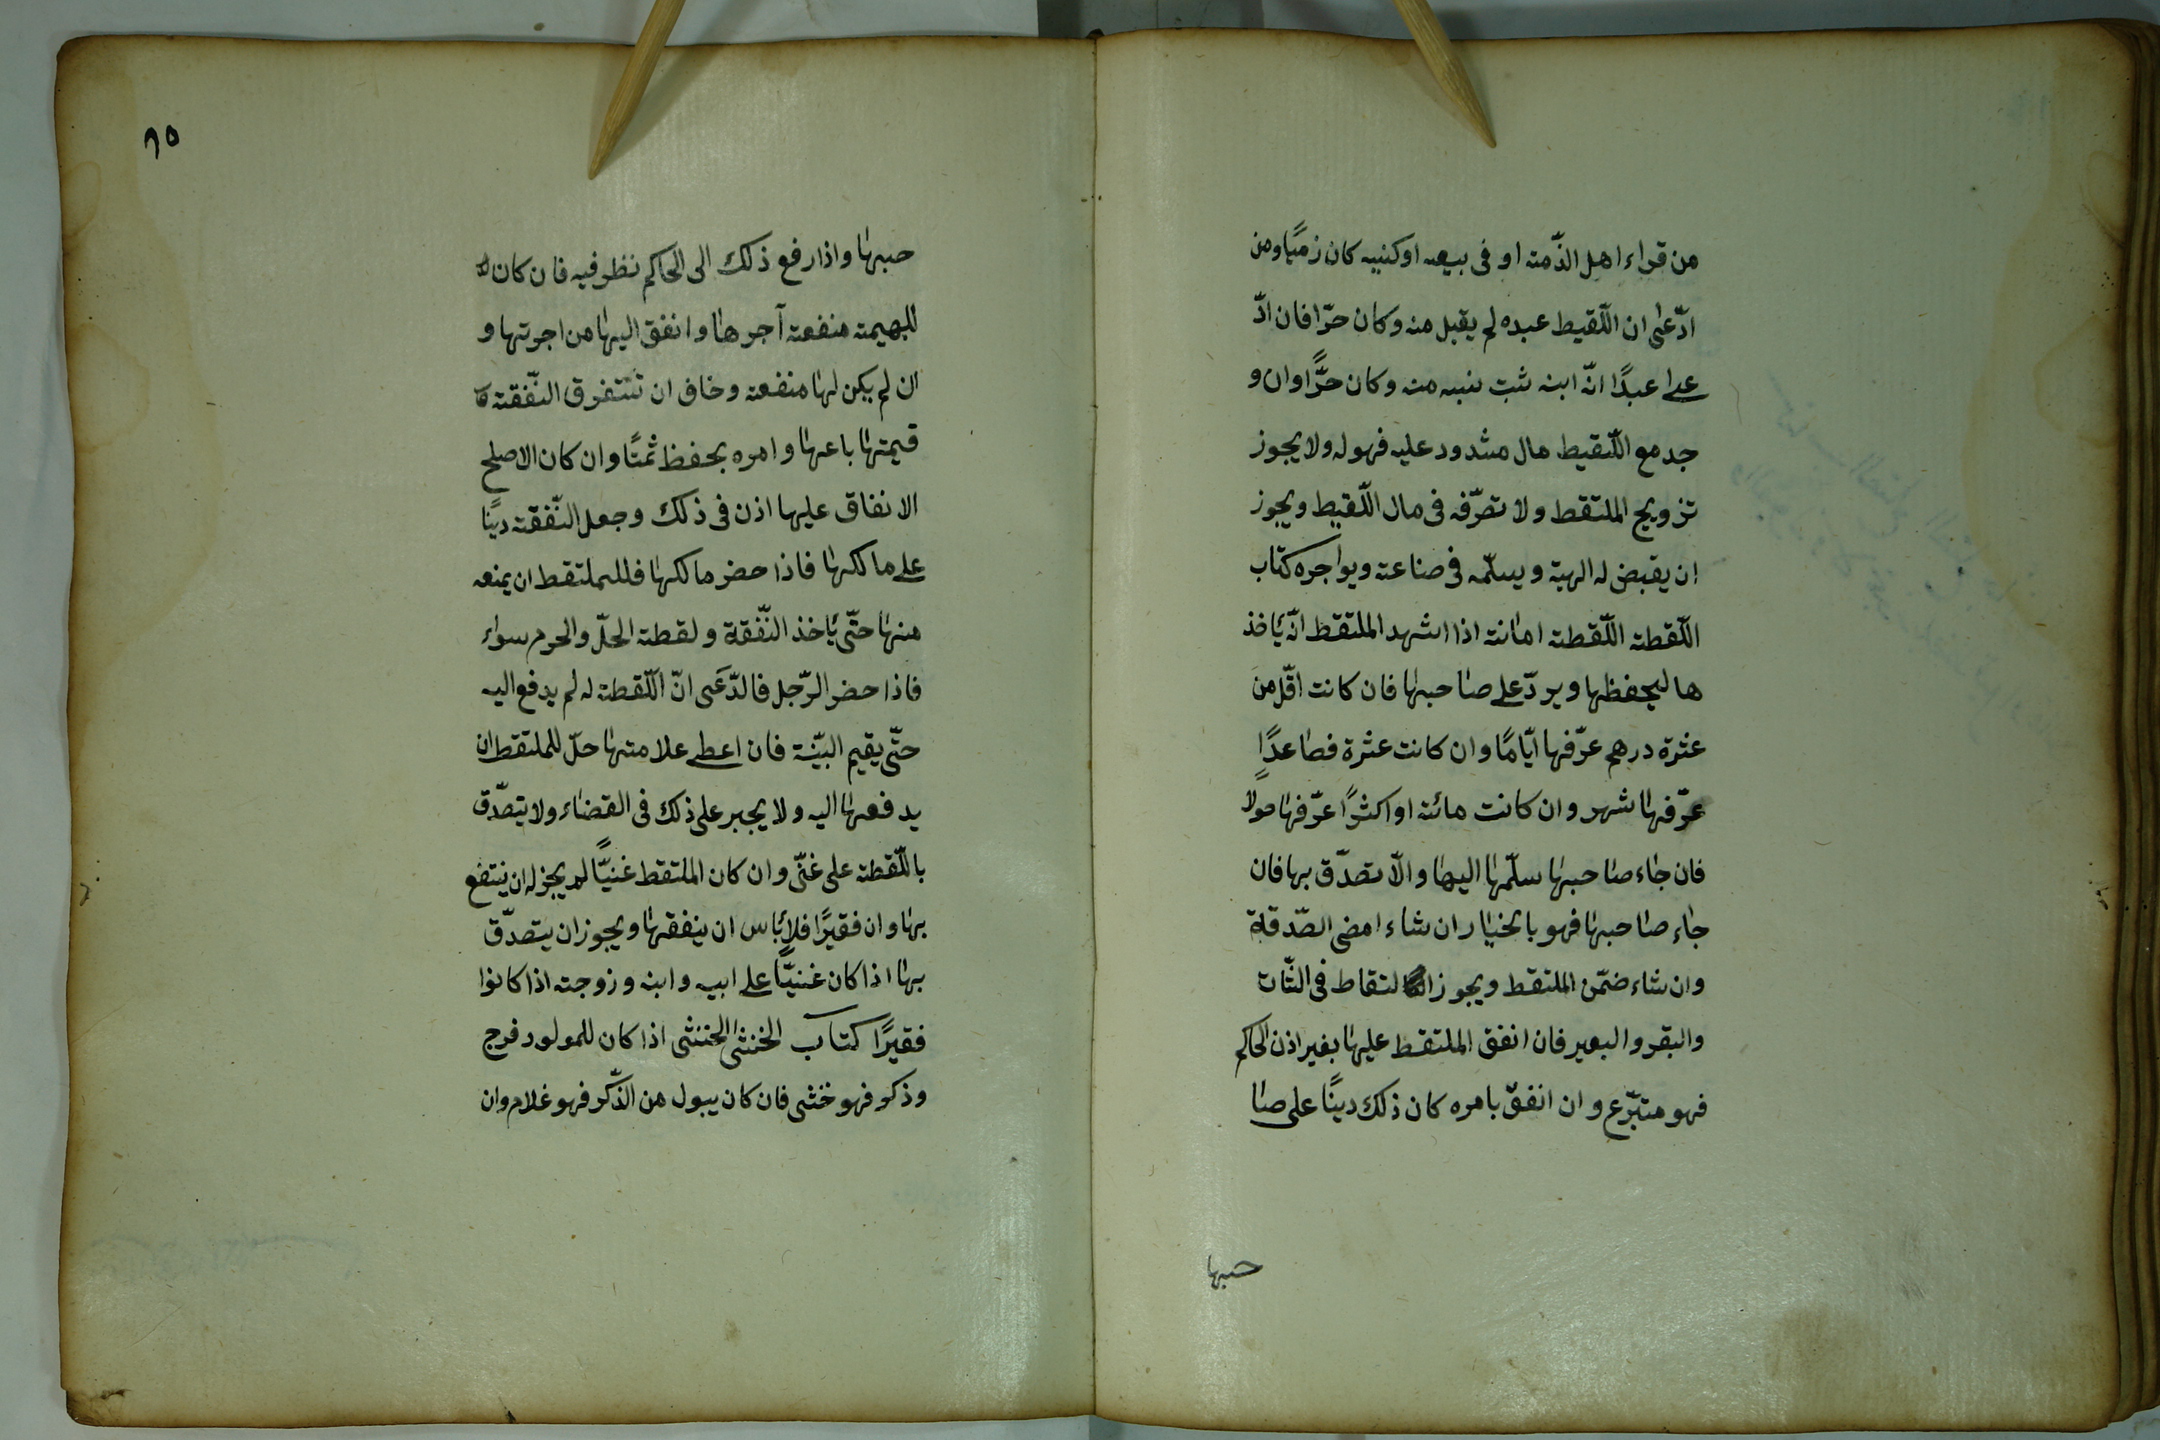 من قراء اهل الذّمته او فى بيعه اوكنيه كان زميًّا ومن
ادّعىٰ ان اللّقيط عبده لم يقبل منه وكان حرّا فان ادّ
على عبدًا انّه ابنه ثبت نسبه منه وكان حرًّا وان و
جد مع اللّقيط مال مشدود عليه فهوله ولا يجوز
تزويج الملتقط ولا تصرّفه فى مال اللّقيط ويجوز
ان يقبض له الهبة ويسلّمه فى صناعته ويواجره كتاب
اللّقطة اللّقطته امانته اذا اشهد الملتقط انّه يأخذ
ها ليحفظها ويردّ على صاحبها فان كانت اقلّ من
عشرة درهم عرّفها ايّامًا وان كانت عشرة فصاعدًا
عرّفها شهر وان كانت مائته او اكثرًا عرّفها حولا
فان جاء صاحبها سلّمها اليها والّا تصدّق بها فان
جاء صاحبها فهو بالخيار ان شاء امضى الصّدقة
وان شاء ضمّن الملتقط ويجوز التقاط فى الشّات
والبقر والبعير فان انفق الملتقط عليها بغير اذن الحاكم
فهو متبرّع وان انفقّ بامره كان ذلك دينًا على صا
حبها
٨٥
حبها واذا رفع ذلك الى الحاكم نظر فيه فان كان
للبهيمته منفعته آجرها وانفق اليها من اجرتها و
ان لم يكن لها منفعته وخاف ان تتتفرق النّفقته
قيمتها باعها وامره بحفظ ثمنًا وان كان الاصلح
الانفاق عليها اذن فى ذلك وجعل النّفقته دينًا
على مالكها فاذا حضر مالكها فللملتقط ان يمنعه
منها حتّى يأخذ النّفقة ولقطته الحلّ والحرم سواء
فاذا حضر الرّجل فالدّعَى انّ اللّقطته له لم يدفع اليه
حتّى يقيم البيّنة فان اعطى علامتها حلّ للملتقط ان
يدفعها اليه ولا يجبر على ذلك فى القضاء ولا يتصدّق
باللّقطته على غنّى وان كان الملتقط غنيًّا لم يجز له ان ينتفع
بها وان فقيرًا فلا بأس ان ينفقها ويجوز ان يتصدّق
بها اذا كان غنيًّا على ابيه وابنه وزوجته اذا كانوا
فقيرًا كتاب الخنثى الخنثى اذا كان للمولود فرج
وذكر فهو خنثى فان كان يبول من الذّكر فهو غلام وان